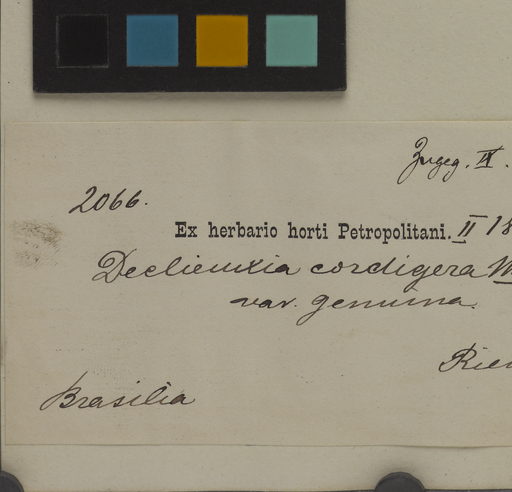 Zugeg. II.
2066.
Ex herbario horti Petropolitani. II 18
Declieuxia cordigera
var. genuina.
Brasilia